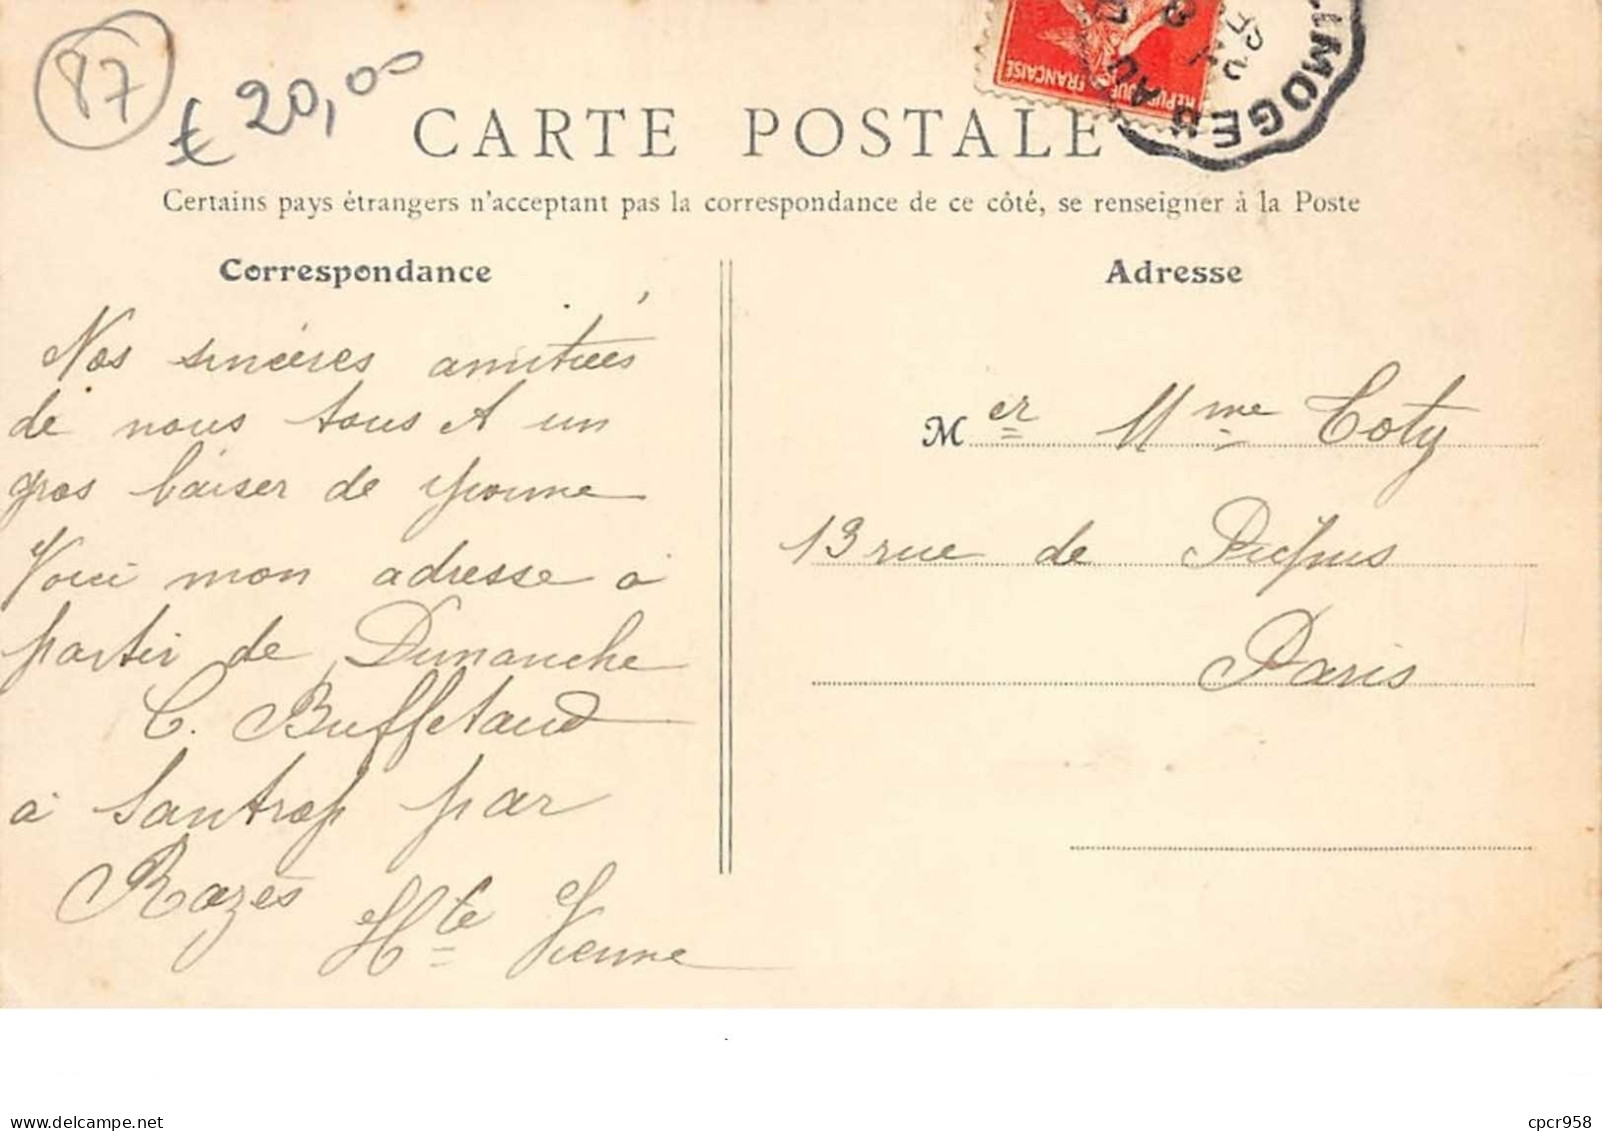 87
€ 20,00
CARTE POSTALE
REPUBLIQUE FRANÇAISE
LIMOGES
Certains pays étrangers n'acceptant pas la correspondance de ce côté, se renseigner à la Poste
Correspondance
Nos sincères amitiées
de nous tous et un
gros baiser de Yvonne
Voici mon adresse à
partir de Dimanche
C. Buffetaud
à Santrop par
Razès
Hte Vienne
Adresse
Mer Mme Coty
13 rue de Picpus
Paris
cpcr958